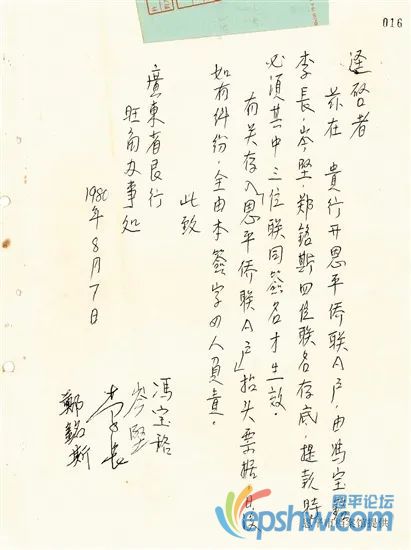 016
迳启者
兹在 貴行开恩平侨联A户,由馮宝
李長,岑堅,郑銘斯四位联名存底,提款時
必須其中三位联同簽名才生效。
有关存入「恩平侨联A户」抬头票据日后
如有,全由本簽字四人負責。
此致
廣東省艮行
旺角办事处
1980年8月7日
馮宝
岑堅
李長
鄭銘斯
恩平论坛
epshw.com